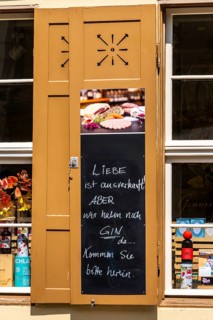 LIEBE
ist ausverkauft!
ABER
wir haben noch
GIN
da...
Kommen Sie
bitte herein.